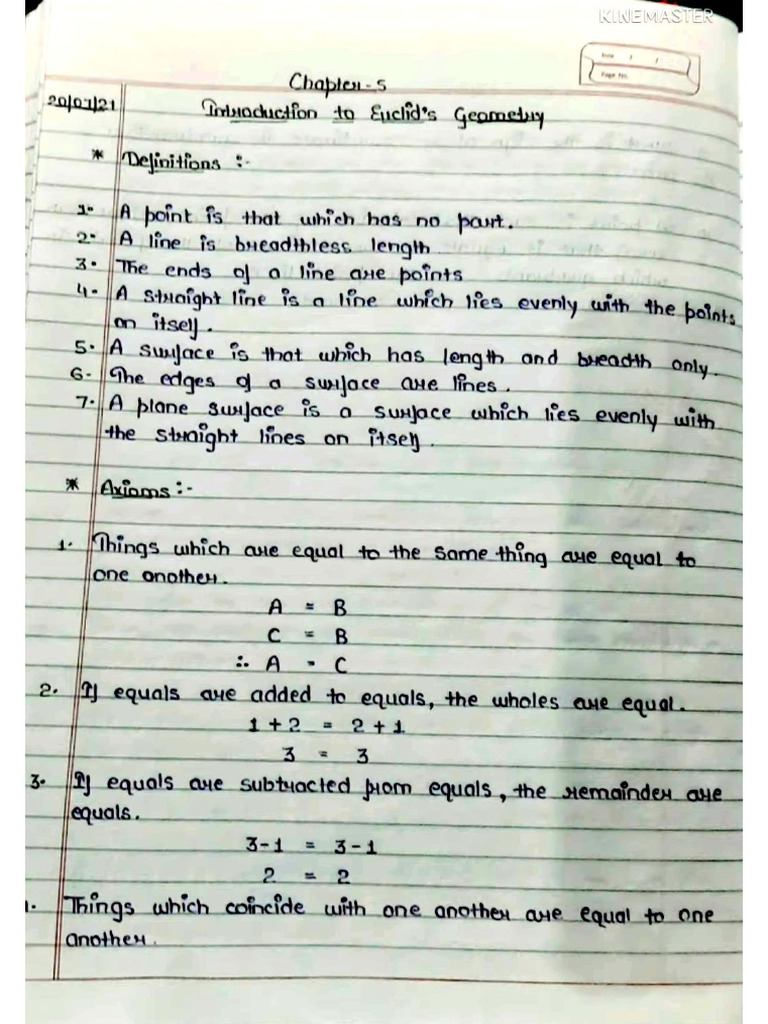 KINEMASTER
Date / /
Page No.
Chapter-5
20/07/21 Introduction to Euclid's Geometry
* Definitions :-
1. A point is that which has no part.
2. A line is breadthless length
3. The ends of a line are points
4. A straight line is a line which lies evenly with the points
on itself.
5. A surface is that which has length and breadth only.
6. The edges of a surface are lines.
7. A plane surface is a surface which lies evenly with
the straight lines on itself.
* Axioms :-
1. Things which are equal to the same thing are equal to
one another.
A = B
C = B
∴ A = C
2. If equals are added to equals, the wholes are equal.
1 + 2 = 2 + 1
3 = 3
3. If equals are subtracted from equals, the remainder are
equals.
3-1 = 3-1
2 = 2
Things which coincide with one another are equal to one
another.